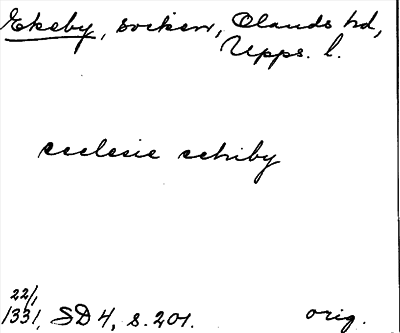 Ekeby, socken, Olands hd,
Upps. l.
ecclesie echiby
22/1
1331, SD 4, s. 201. orig.